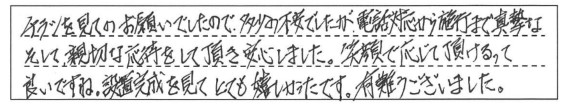 チラシを見てのお願いでしたので、多少の不安でしたが、電話対応から施行まで真摯な
そして、親切な応待をして頂き安心しました。笑顔で応じて頂けるって
良いですね。設置完成を見てとても嬉しかったです。有難うございました。